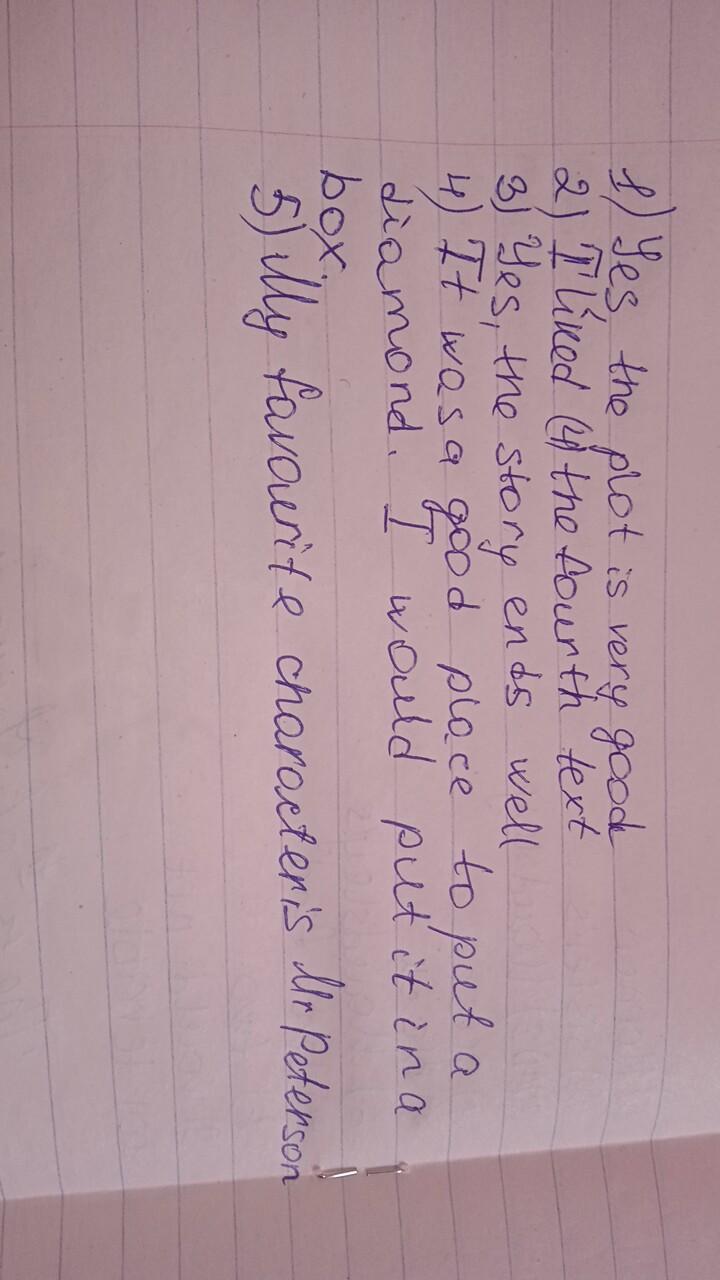 1) Yes, the plot is very good
2) I liked (4) the fourth text
3) Yes, the story ends well
4) It was a good place to put a
diamond. I would put it in a
box.
5) My favourite character is Mr Peterson